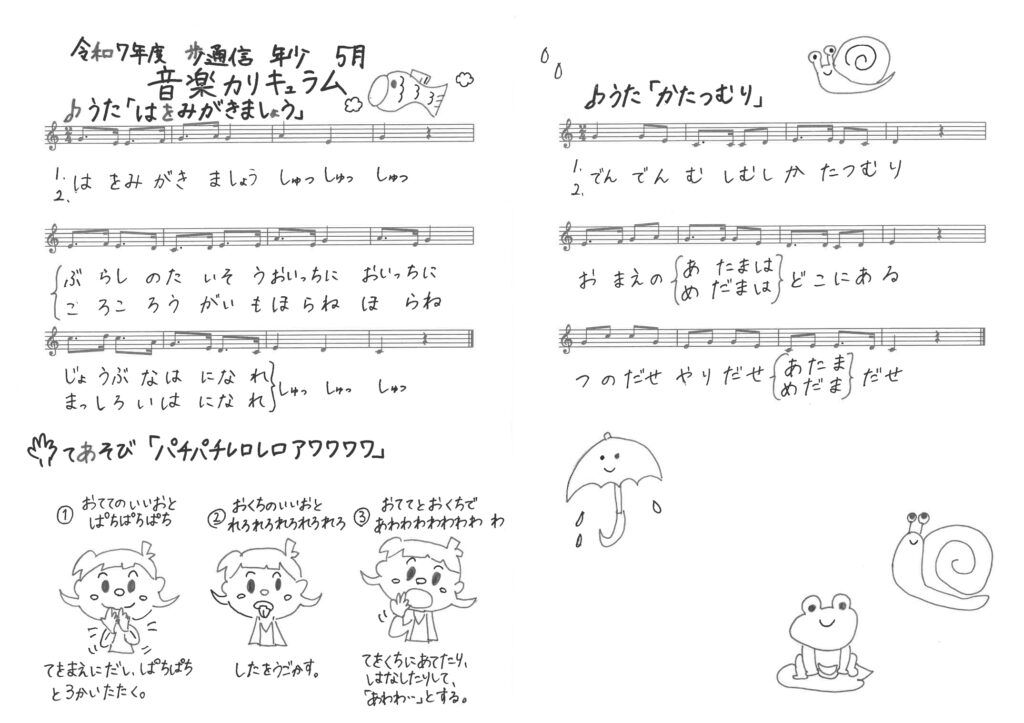 令和7年度 歩通信 年少 5月
音楽カリキュラム
♪うた「はをみがきましょう」
1. は をみ がき ましょう しゅっ しゅっ しゅっ
2.
ぶ らし のた いそ うおいっちに おいっちに
ご ろこ ろう がい もほ らね ほ らね
じょ うぶ なは になれ しゅっ しゅっ しゅっ
まっしろ いは になれ
てあそび「パチパチレロレロアワワワワ」
① おててのいいおと
ぱちぱちぱち
てをまえにだし、ぱちぱち
と3かいたたく。
② おくちのいいおと
れろれろれろれろれろ
したをうごかす。
③ おててとおくちで
あわわわわわわわ わ
てをくちにあてたり、
はなしたりして、
「あわわ…」とする。
♪うた「かたつむり」
1. でん でん む しむし か たつむ り
2.
お まえの {あ たまは} どこにあ る
{め だまは}
つ のだせ やり だせ {あたま} だせ
{めだま}